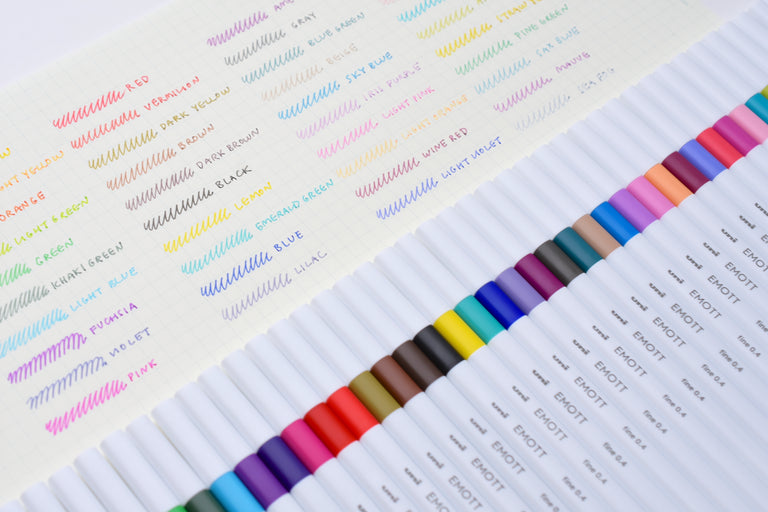 RED
VERMILION
DARK YELLOW
BROWN
DARK BROWN
BLACK
LEMON
EMERALD GREEN
BLUE
LILAC
ORANGE
LIGHT GREEN
GREEN
KHAKI GREEN
LIGHT BLUE
FUCHSIA
VIOLET
PINK
GRAY
BLUE GREEN
BEIGE
SKY BLUE
LIGHT PINK
WINE RED
LIGHT VIOLET
PINE GREEN
SAX BLUE
MAUVE
uni EMOTT fine 0.4
uni EMOTT fine 0.4
uni EMOTT fine 0.4
uni EMOTT fine 0.4
uni EMOTT fine 0.4
uni EMOTT fine 0.4
uni EMOTT fine 0.4
uni EMOTT fine 0.4
uni EMOTT
uni EMOTT